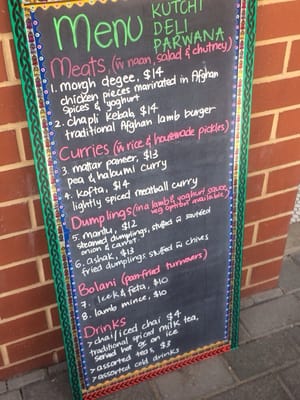 Menu
KUTCHI
DELI
PARWANA
Meats (w naan, salad & chutney)
1. morgh degee, $14
chicken pieces marinated in Afghan
spices & yoghurt
2. chapli kebab, $14
traditional Afghan lamb burger
Curries (w rice & housemade pickles)
3. mattar paneer, $13
pea & haloumi curry
4. kofta, $14
lightly spiced meatball curry
Dumplings (in a lamb & yoghurt sauce,
veg option available)
5. mantu, $12
steamed dumplings, stuffed w sautéed
onion & carrot
6. ashak, $13
fried dumplings stuffed w chives
Bolani (pan-fried turnovers)
7. leek & feta, $10
8. lamb mince, $10
Drinks
> chai/iced chai $4
traditional spiced milk tea,
served hot or on ice
> assorted teas, $3
> assorted cold drinks